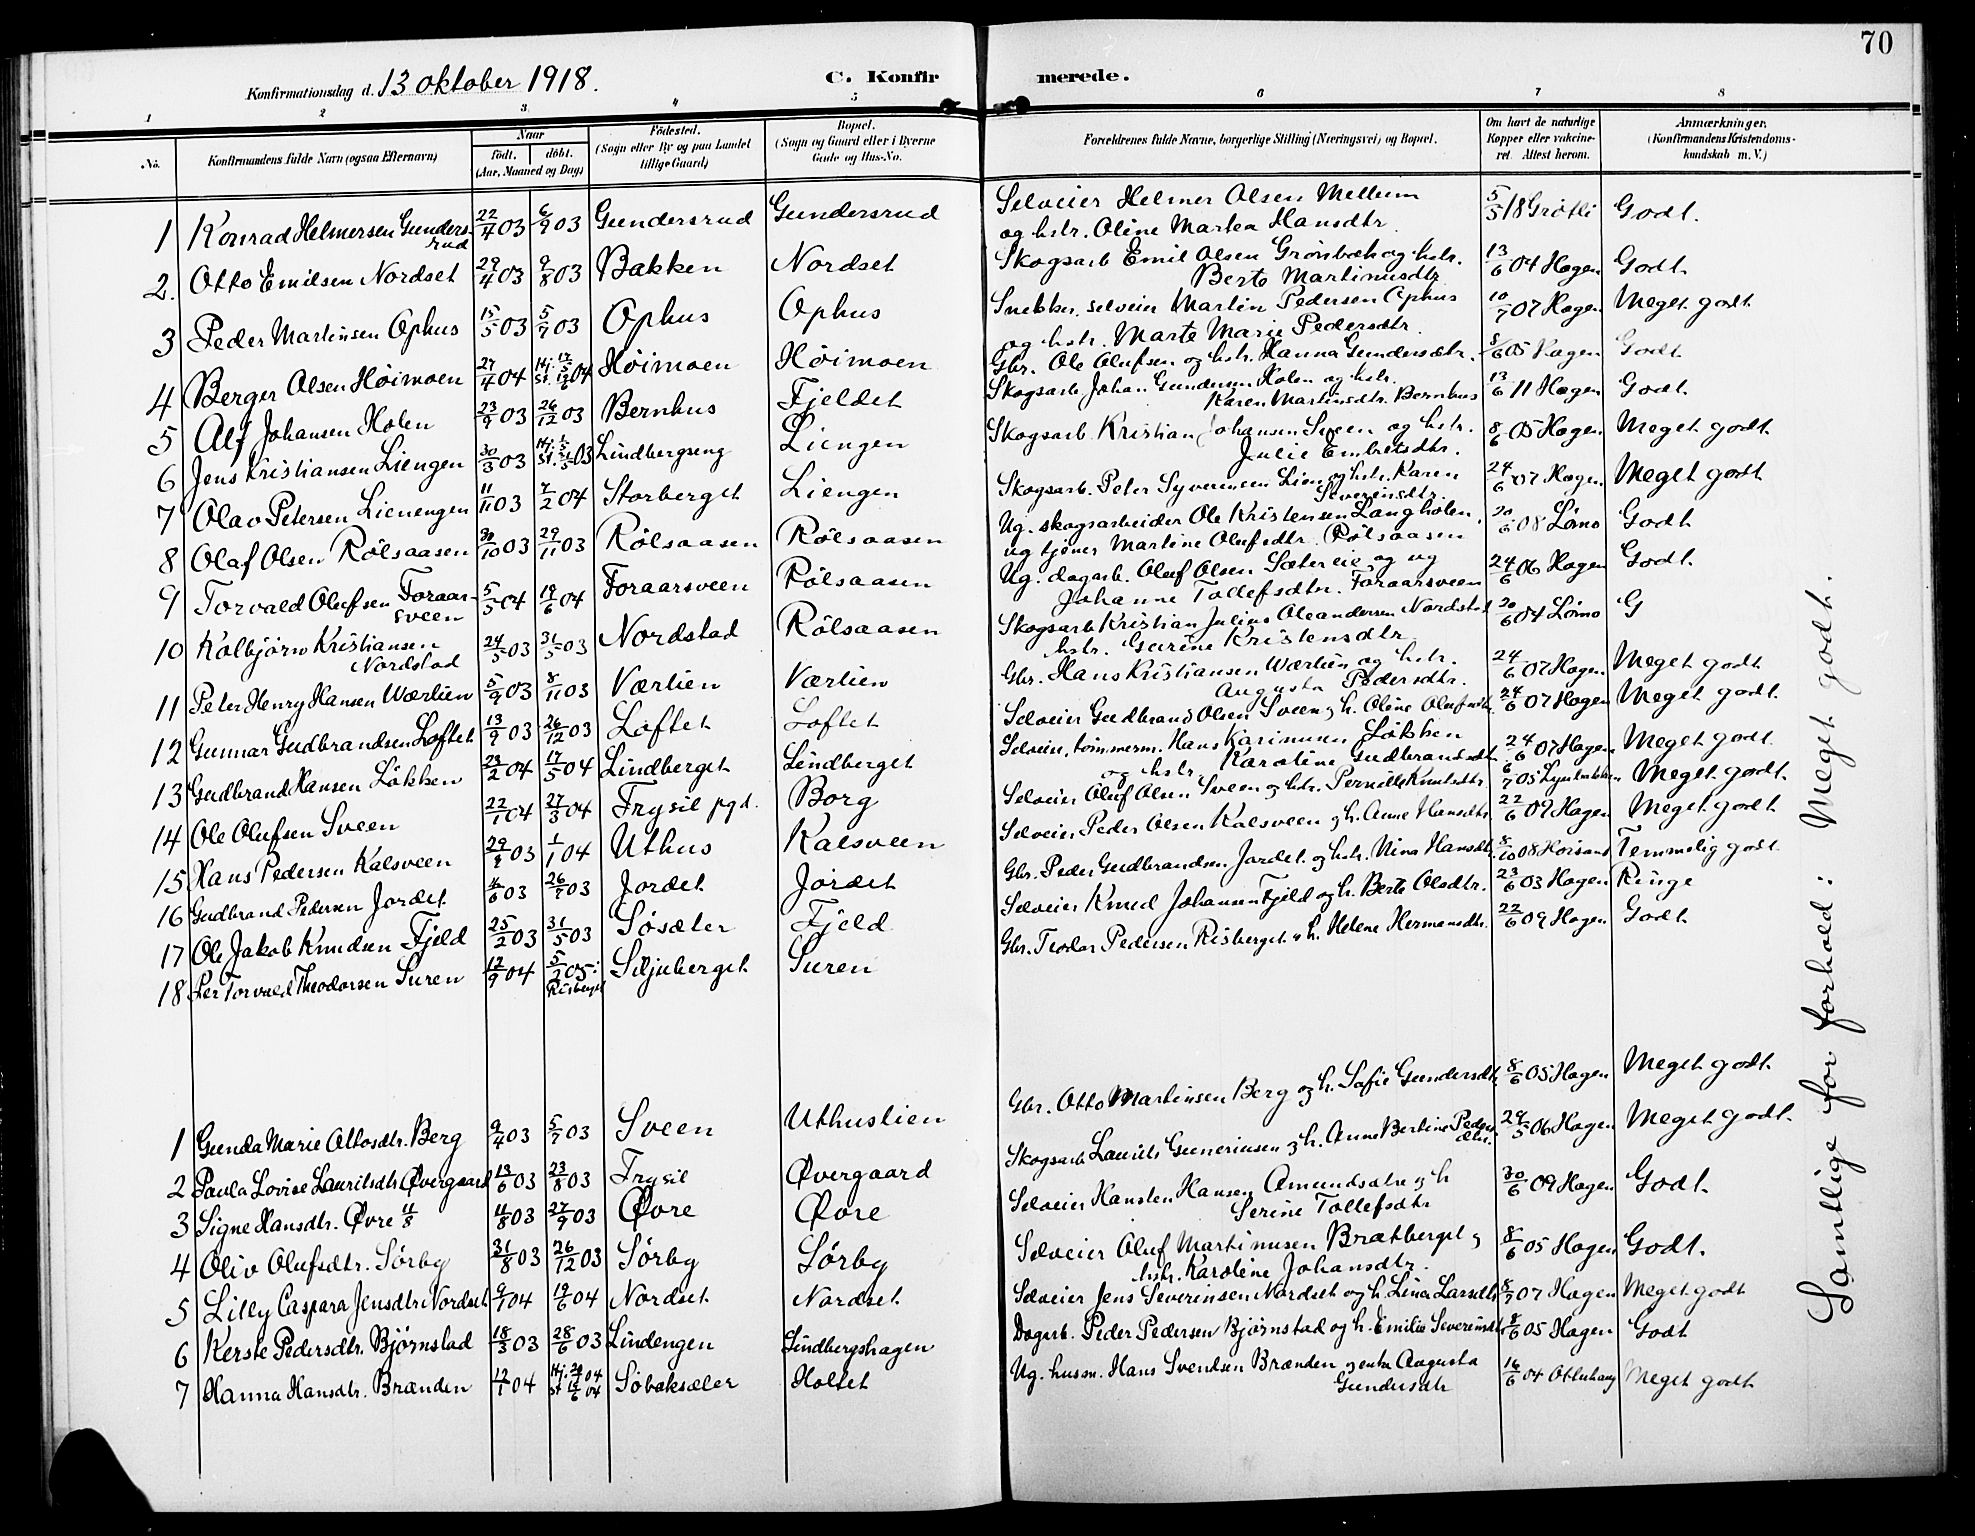 70
Konfirmationsdag d. 13 oktober 1918. C. Konfirmerede.
1 2 3 4 5 6 7 8
No. Konfirmandens fulde Navn (ogsaa Efternavn) Naar født. døbt. (Aar, Maaned og Dag) Fødested. (Sogn eller By og paa Landet tillige Gaard) Bopæl. (Sogn og Gaard eller i Byerne Gade og Hus-No. Forældrenes fulde Navne, borgerlige Stilling (Næringsvei) og Bopæl. Om havt de naturlige Kopper eller vakcineret. Attest herom. Anmærkninger. (Konfirmandens Kristendomskundskab m. V.)
1 Konrad Helmersen Gundersrud 22/4 03 6/9 03 Gundersrud Gundersrud Selveier Helmer Olsen Mellum og hstr. Oline Martea Hansdtr. 5/5 18 Grøtli Godt.
2. Otto Emilsen Nordset 29/4 03 9/8 03 Bakken Nordset Skogsarb Emil Olsen Grønbæk og hstr. Berte Martinusdtr 13/6 04 Hagen Godt.
3 Peder Martinsen Ophus 15/5 03 5/7 03 Ophus Ophus Snekker, selveier Martin Pedersen Ophus og hstr. Marte Marie Pedersdtr. 10/7 07 Hagen Meget godt
4 Berger Olsen Høimoen 27/4 04 Hj. 12/5 St. 19/6 04 Høimoen Høimoen Gbr. Ole Olufsen og hstr. Hanna Gundersdtr. 8/6 05 Hagen Godt.
5 Alf Johansen Holen 23/9 03 26/12 03 Bernhus Fjeldet Skogsarb Johan Gundersen Holen og hstr. Karen Martinsdtr. Bernhus 13/6 11 Hagen Godt.
6 Jens Kristiansen Liengen 30/3 03 Lindbergseng Liengen Skogsarb. Kristian Johansen Sveen og hstr. Julie Embretsdtr. 8/6 05 Hagen Meget godt.
7 Olav Petersen Lienengen 11/11 03 7/2 04 Storberget Liengen Skogsarb. Peter Syversensen Lien og hstr. Karen Severinsdtr. 24/6 07 Hagen Meget godt
8 Olaf Olsen Rølsaasen 30/10 03 29/11 03 Rølsaasen Rølsaasen Ug. skogsarbeider Ole Kristensen Langholen, ug tjener Martine Olufsdtr. Rølsaasen 20/6 08 Lømo Godt
9 Torvald Olufsen Foraarsveen 5/5 04 19/6 04 Foraarsveen Rølsaasen Ug. dagarb. Oluf Olsen Sætereie og ug Johanne Tollefsdtr. Foraarsveen 24/6 06 Hagen Godt.
10 Kolbjørn Kristiansen Nordstad 24/5 03 31/5 03 Nordstad Rølsaasen Skogsarb Kristian Julius Oleandersen Nordstad hstr. Gurine Kristensdtr 20/6 04 Lømo G
11 Peter Henry Hansen Værlien 5/9 03 8/11 03 Værlien Værlien Gbr. Hans Kristiansen Værlien og hstr. Augusta Pedersdtr. 24/6 07 Hagen Meget godt
12 Gunnar Gudbrandsen Loftet 13/9 03 26/12 03 Loftet Loftet Selveier Gudbrand Olsen Sveen og h. Oline Olufsdtr. 24/6 07 Hagen Meget godt.
13 Gudbrand Hansen Løkken 23/2 04 17/5 04 Lindberget Lindberget Selveier, tømmerm. Hans Karinusen Løkken og hstr. Karoline Gudbrandsdtr 24/6 07 Hagen Meget godt
14 Ole Olufsen Sveen 22/1 04 27/3 04 Trysil pgd. Borg Selveier Oluf Olsen Sveen og hstr. Pernille Knutsdtr. 6/7 05 Meget godt.
15 Hans Pedersen Kalsveen 29/9 03 1/1 04 Uthus Kalsveen Selveier Peder Olsen Kalsveen og h. Anne Hansdtr. 22/6 09 Hagen Meget godt
16 Gudbrand Pedersen Jordet 4/6 03 26/7 03 Jordet Jordet Gbr. Peder Gudbrandsen Jordet og hstr. Nina Hansdtr. 8/10 08 Temmelig godt
17 Ole Jakob Knudsen Fjeld 25/2 03 31/5 03 Søsæter Fjeld Selveier Knud Johansen Fjeld og h. Berte Olsdtr. 23/6 03 Hagen Ringe
18 Per Torvald Theodorsen Suren 12/9 04 5/2 05 i Risberget Siljuberget Suren Gbr. Teodor Pedersen Risberget og h. Helene Hermansdtr. 22/6 09 Hagen Godt
1 Gunda Marie Ottosdtr. Berg 9/4 03 5/7 03 Sveen Uthuslien Gbr. Otto Martinsen Berg og h. Sofie Gundersdtr 8/6 05 Hagen Meget godt.
2 Paula Lovise Lauritsdtr. Øvergaard 13/6 03 23/8 03 Trysil Øvergaard Skogsarb Laurits Guneriusen og h. Anne Bertine Pedersdtr. 24/5 06 Hagen Meget godt.
3 Signe Hansdtr. Øvre 11/8 11/8 03 27/9 03 Øvre Øvre Selveier Hansten Hansen Amundsdtre og h Serine Tollefsdtr 30/6 09 Hagen Godt.
4 Oliv Olufsdtr. Sørby 31/8 03 26/12 03 Sørby Sørby Selveier Oluf Martinusen Brætberget og hstr. Karoline Johansdtr 8/6 05 Hagen Godt.
5 Lilly Caspara Jensdtr. Nordset 9/1 04 19/6 04 Nordset Nordset Selveier Jens Severinsen Nordset og h. Lina Larsdtr 8/7 07 Hagen Meget godt
6 Kerste Pedersdtr. Bjørnstad 18/3 03 28/6 03 Lindengen Lindbergshagen Dagarb. Peder Pedersen Bjørnstad og h. Emilie Severinsdtr 8/6 05 Hagen Godt
7 Hanna Hansdtr. Brænden 12/1 04 Hj. 24/1 04 St 19/6 04 Søbæksæter Holtet Ug. husm. Hans Svendsen Brænden og enke Augusta Gundersdtr 16/6 04 Meget godt
Samtlige for forhold: Meget godt.